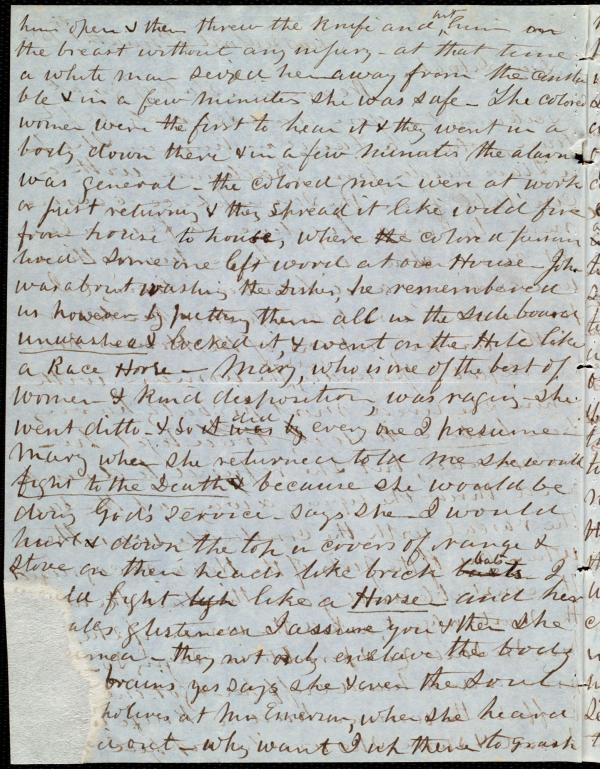 him open & then threw the knife and hit him on
the breast without any injury - at that time
a white man seized her away from the consta
ble & in a few minutes she was safe - The colored
women were the first to hear it & they went in a
body down there & in a few minutes the alarm
was general - the colored men were at work
or just returning & they spread it like wild fire
from house to house, where the colored person
lived - Some one left word at our House - John
was about washing the dishes, he remembered
us however by putting them all in the sideboard
unwashed & locked it, & went on the Hill like
a Race Horse - Mary, who is one of the best of
women & kind disposition, was raging - she
went ditto - & so did every one I presume -
Mary when she returned told me she would
fight to the Death & because she would be
doing God's service - says she - I would
hurl down the top covers of range &
stove on their heads like brick bats I
fight like a Horse and her
glistened I assure you & then she
they not only enslave the body
brains, yes says she & even the Soul -
lives at Mr Emerson, when she heard
out - why want I up there to